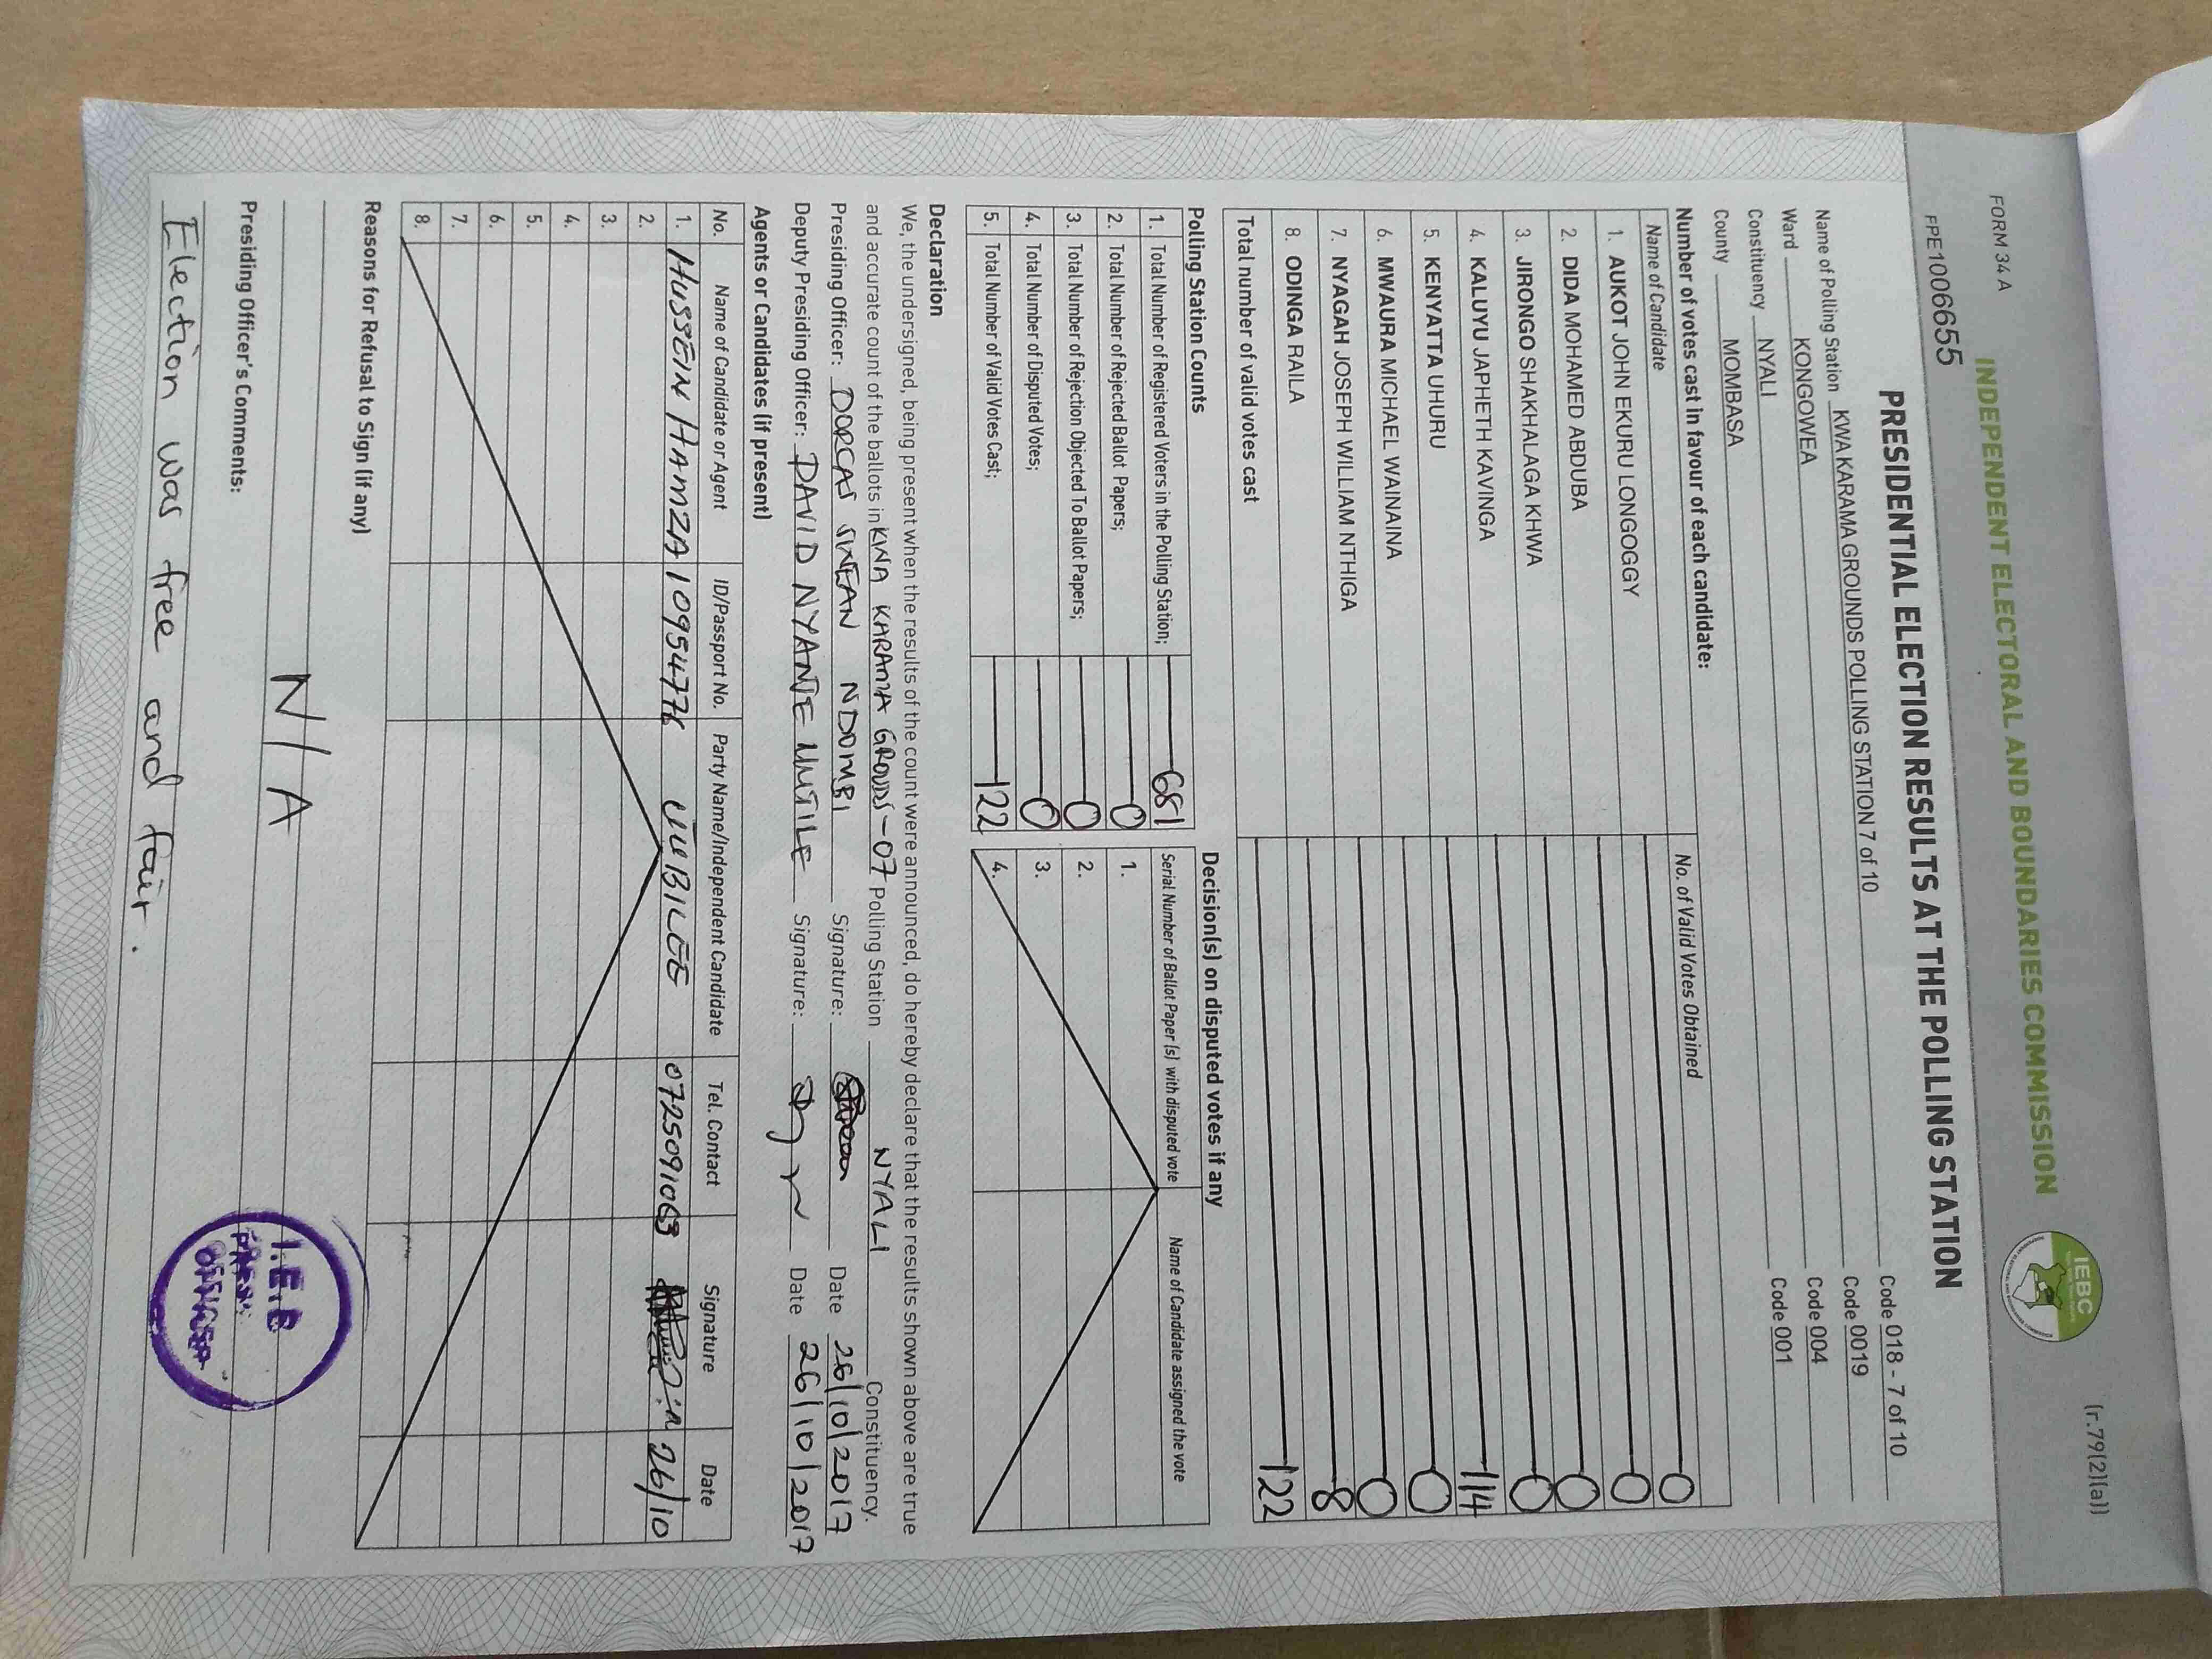 FORM 34 A
(r.79(2)(a))
INDEPENDENT ELECTORAL AND BOUNDARIES COMMISSION
IEBC
FPE1006655
PRESIDENTIAL ELECTION RESULTS AT THE POLLING STATION
Name of Polling Station KWA KARAMA GROUNDS POLLING STATION 7 of 10 Code 018 - 7 of 10
Ward KONGOWEA Code 0019
Constituency NYALI Code 004
County MOMBASA Code 001
Number of votes cast in favour of each candidate:
Name of Candidate No. of Valid Votes Obtained
1. AUKOT JOHN EKURU LONGOGGY 0
2. DIDA MOHAMED ABDUBA 0
3. JIRONGO SHAKHALAGA KHWA 0
4. KALUYU JAPHETH KAVINGA 0
5. KENYATTA UHURU 114
6. MWAURA MICHAEL WAINAINA 0
7. NYAGAH JOSEPH WILLIAM NTHIGA 0
8. ODINGA RAILA 8
Total number of valid votes cast 122
Polling Station Counts
1. Total Number of Registered Voters in the Polling Station; 681
2. Total Number of Rejected Ballot Papers; 0
3. Total Number of Rejection Objected To Ballot Papers; 0
4. Total Number of Disputed Votes; 0
5. Total Number of Valid Votes Cast; 122
Decision(s) on disputed votes if any
Serial Number of Ballot Paper (s) with disputed vote Name of Candidate assigned the vote
1.
2.
3.
4.
Declaration
We, the undersigned, being present when the results of the count were announced, do hereby declare that the results shown above are true
and accurate count of the ballots in KWA KARAMA GROUNDS-07 Polling Station NYALI Constituency.
Presiding Officer: DORCAS NDOMBI Signature: Date 26/10/2017
Deputy Presiding Officer: DAVID NYANJE MUTILE Signature: Date 26/10/2017
Agents or Candidates (if present)
No. Name of Candidate or Agent ID/Passport No. Party Name/Independent Candidate Tel. Contact Signature Date
1. HUSSEIN HAMZA 10954776 JUBILEE 0725091063 26/10
2.
3.
4.
5.
6.
7.
8.
Reasons for Refusal to Sign (if any)
N/A
Presiding Officer's Comments:
Election was free and fair.